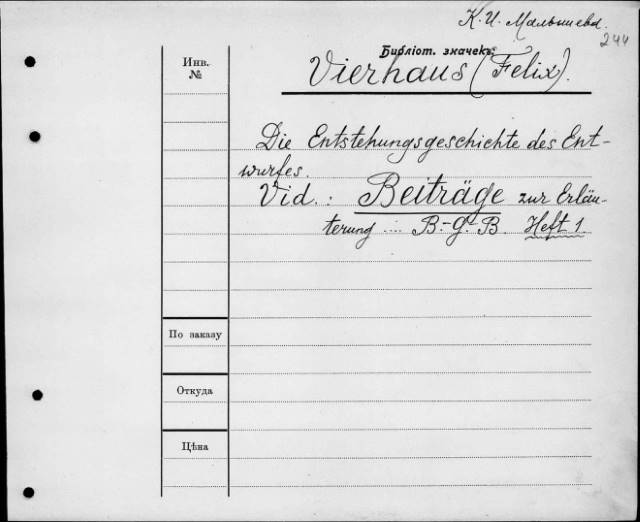 К. И. Малышева.
244
Инв.
№
Библіот. значекъ
Vierhaus (Felix).
Die Entstehungsgeschichte des Ent-
wurfes.
Vid.: Beiträge zur Erläu-
terung .... B.-G.-B. Heft 1.
По заказу
Откуда
Цѣна